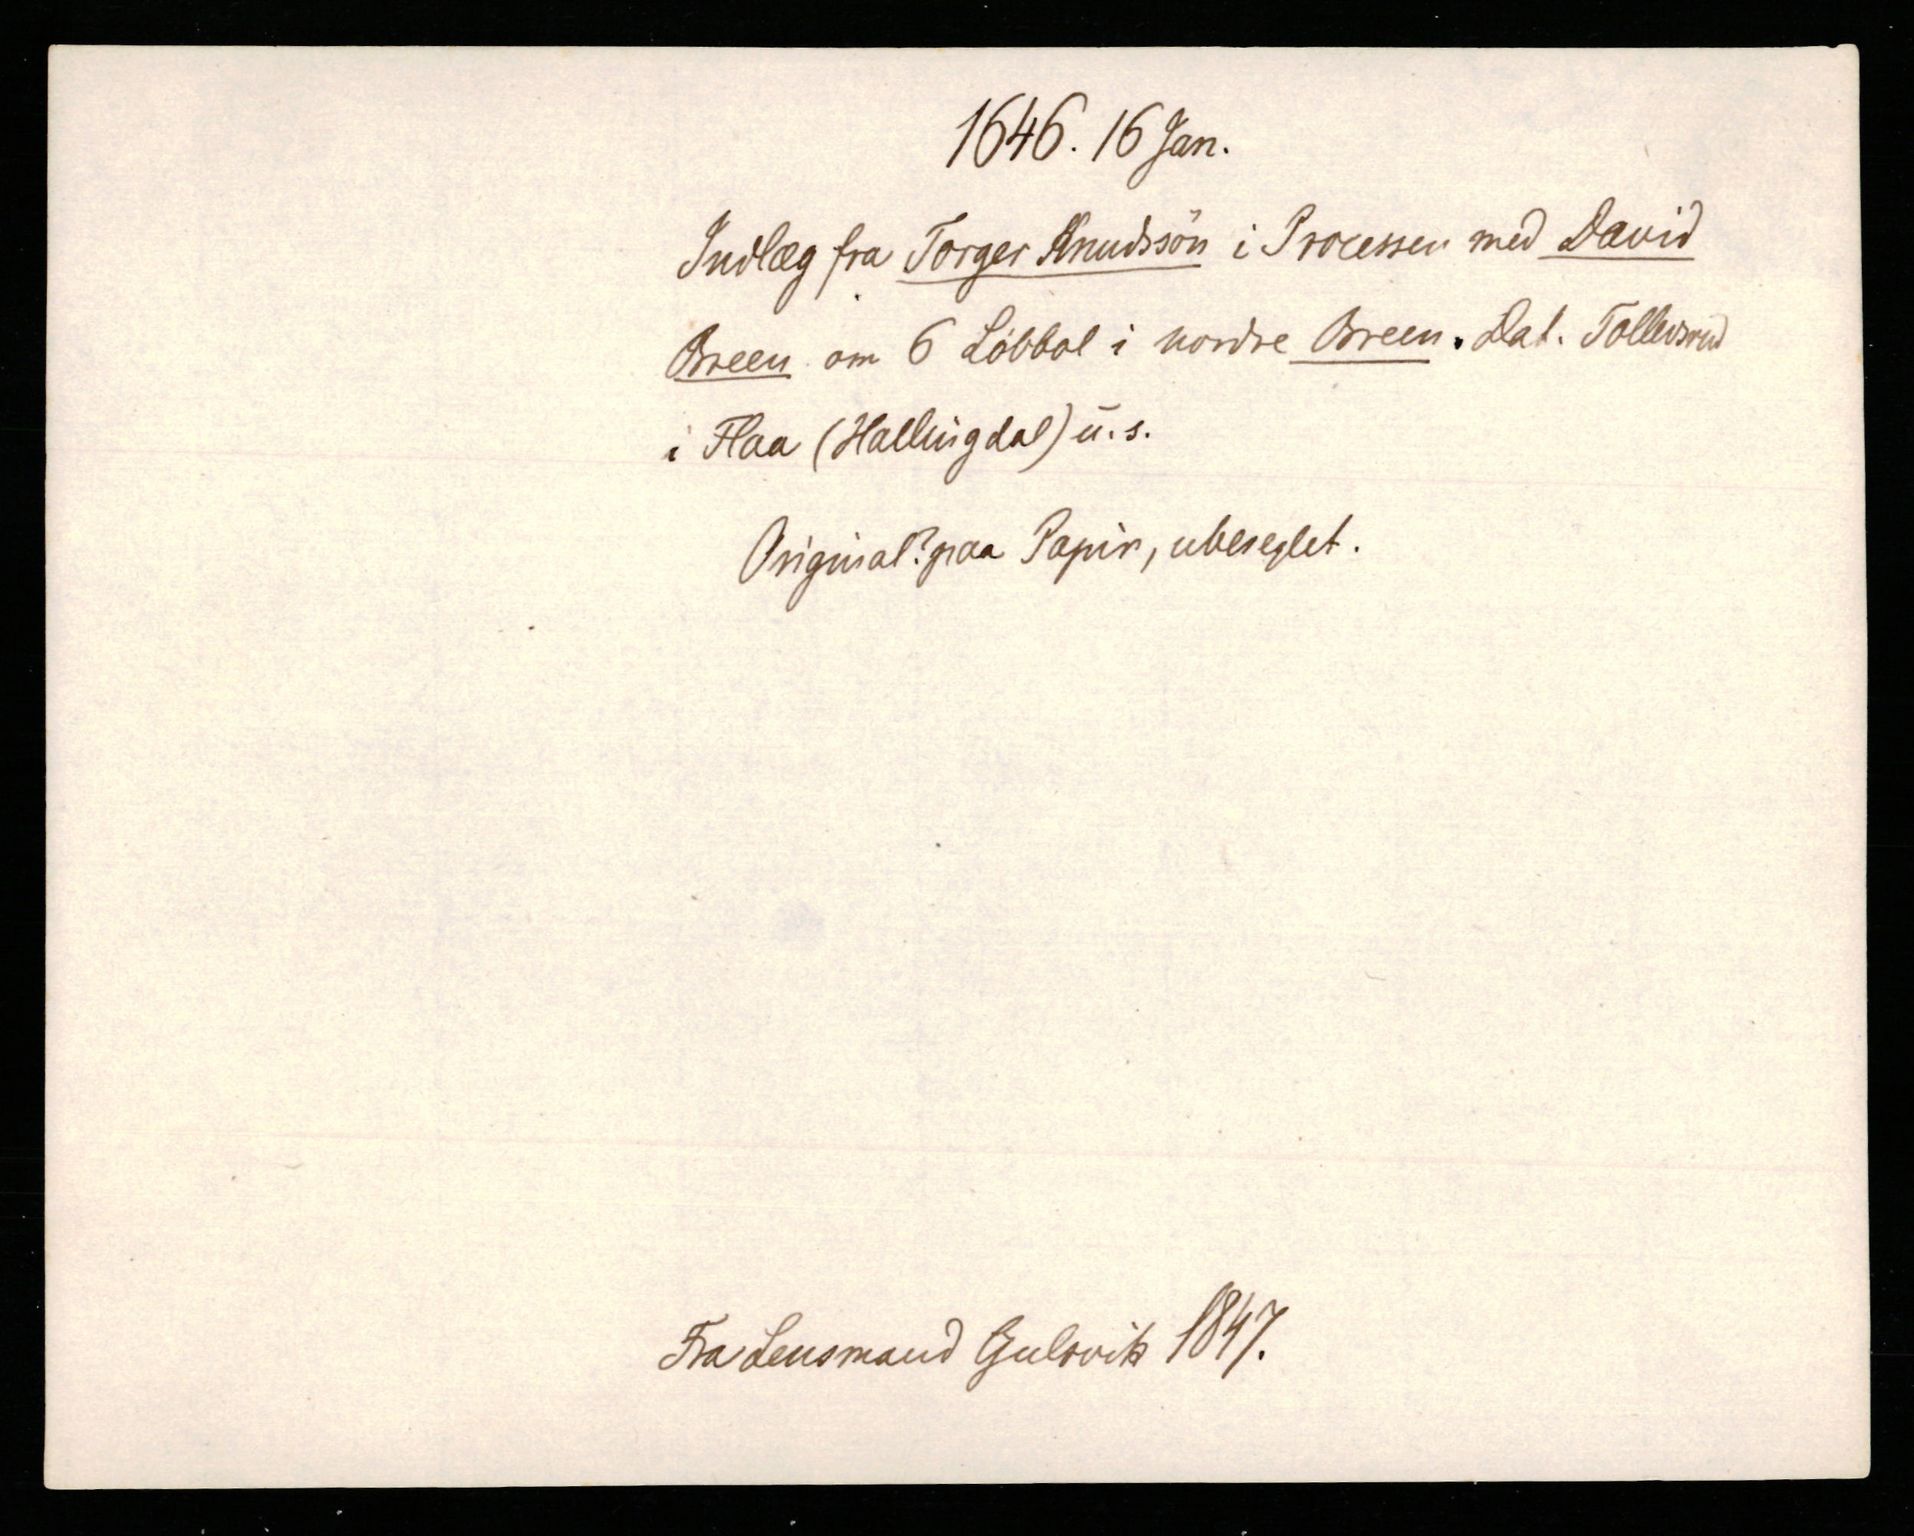 1646. 16 Jan.
Indlæg fra Torger Knudssön i Processen med David
Breen om 6 Löbbol i nordre Breen. Dat. Tollevsrud
i Flaa (Hallingdal) u. s.
Original? paa Papir, ubeseglet.
Fra Lensmand Gulsvik 1847.